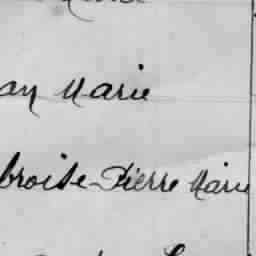 an Marie
broise-Pierre Marie